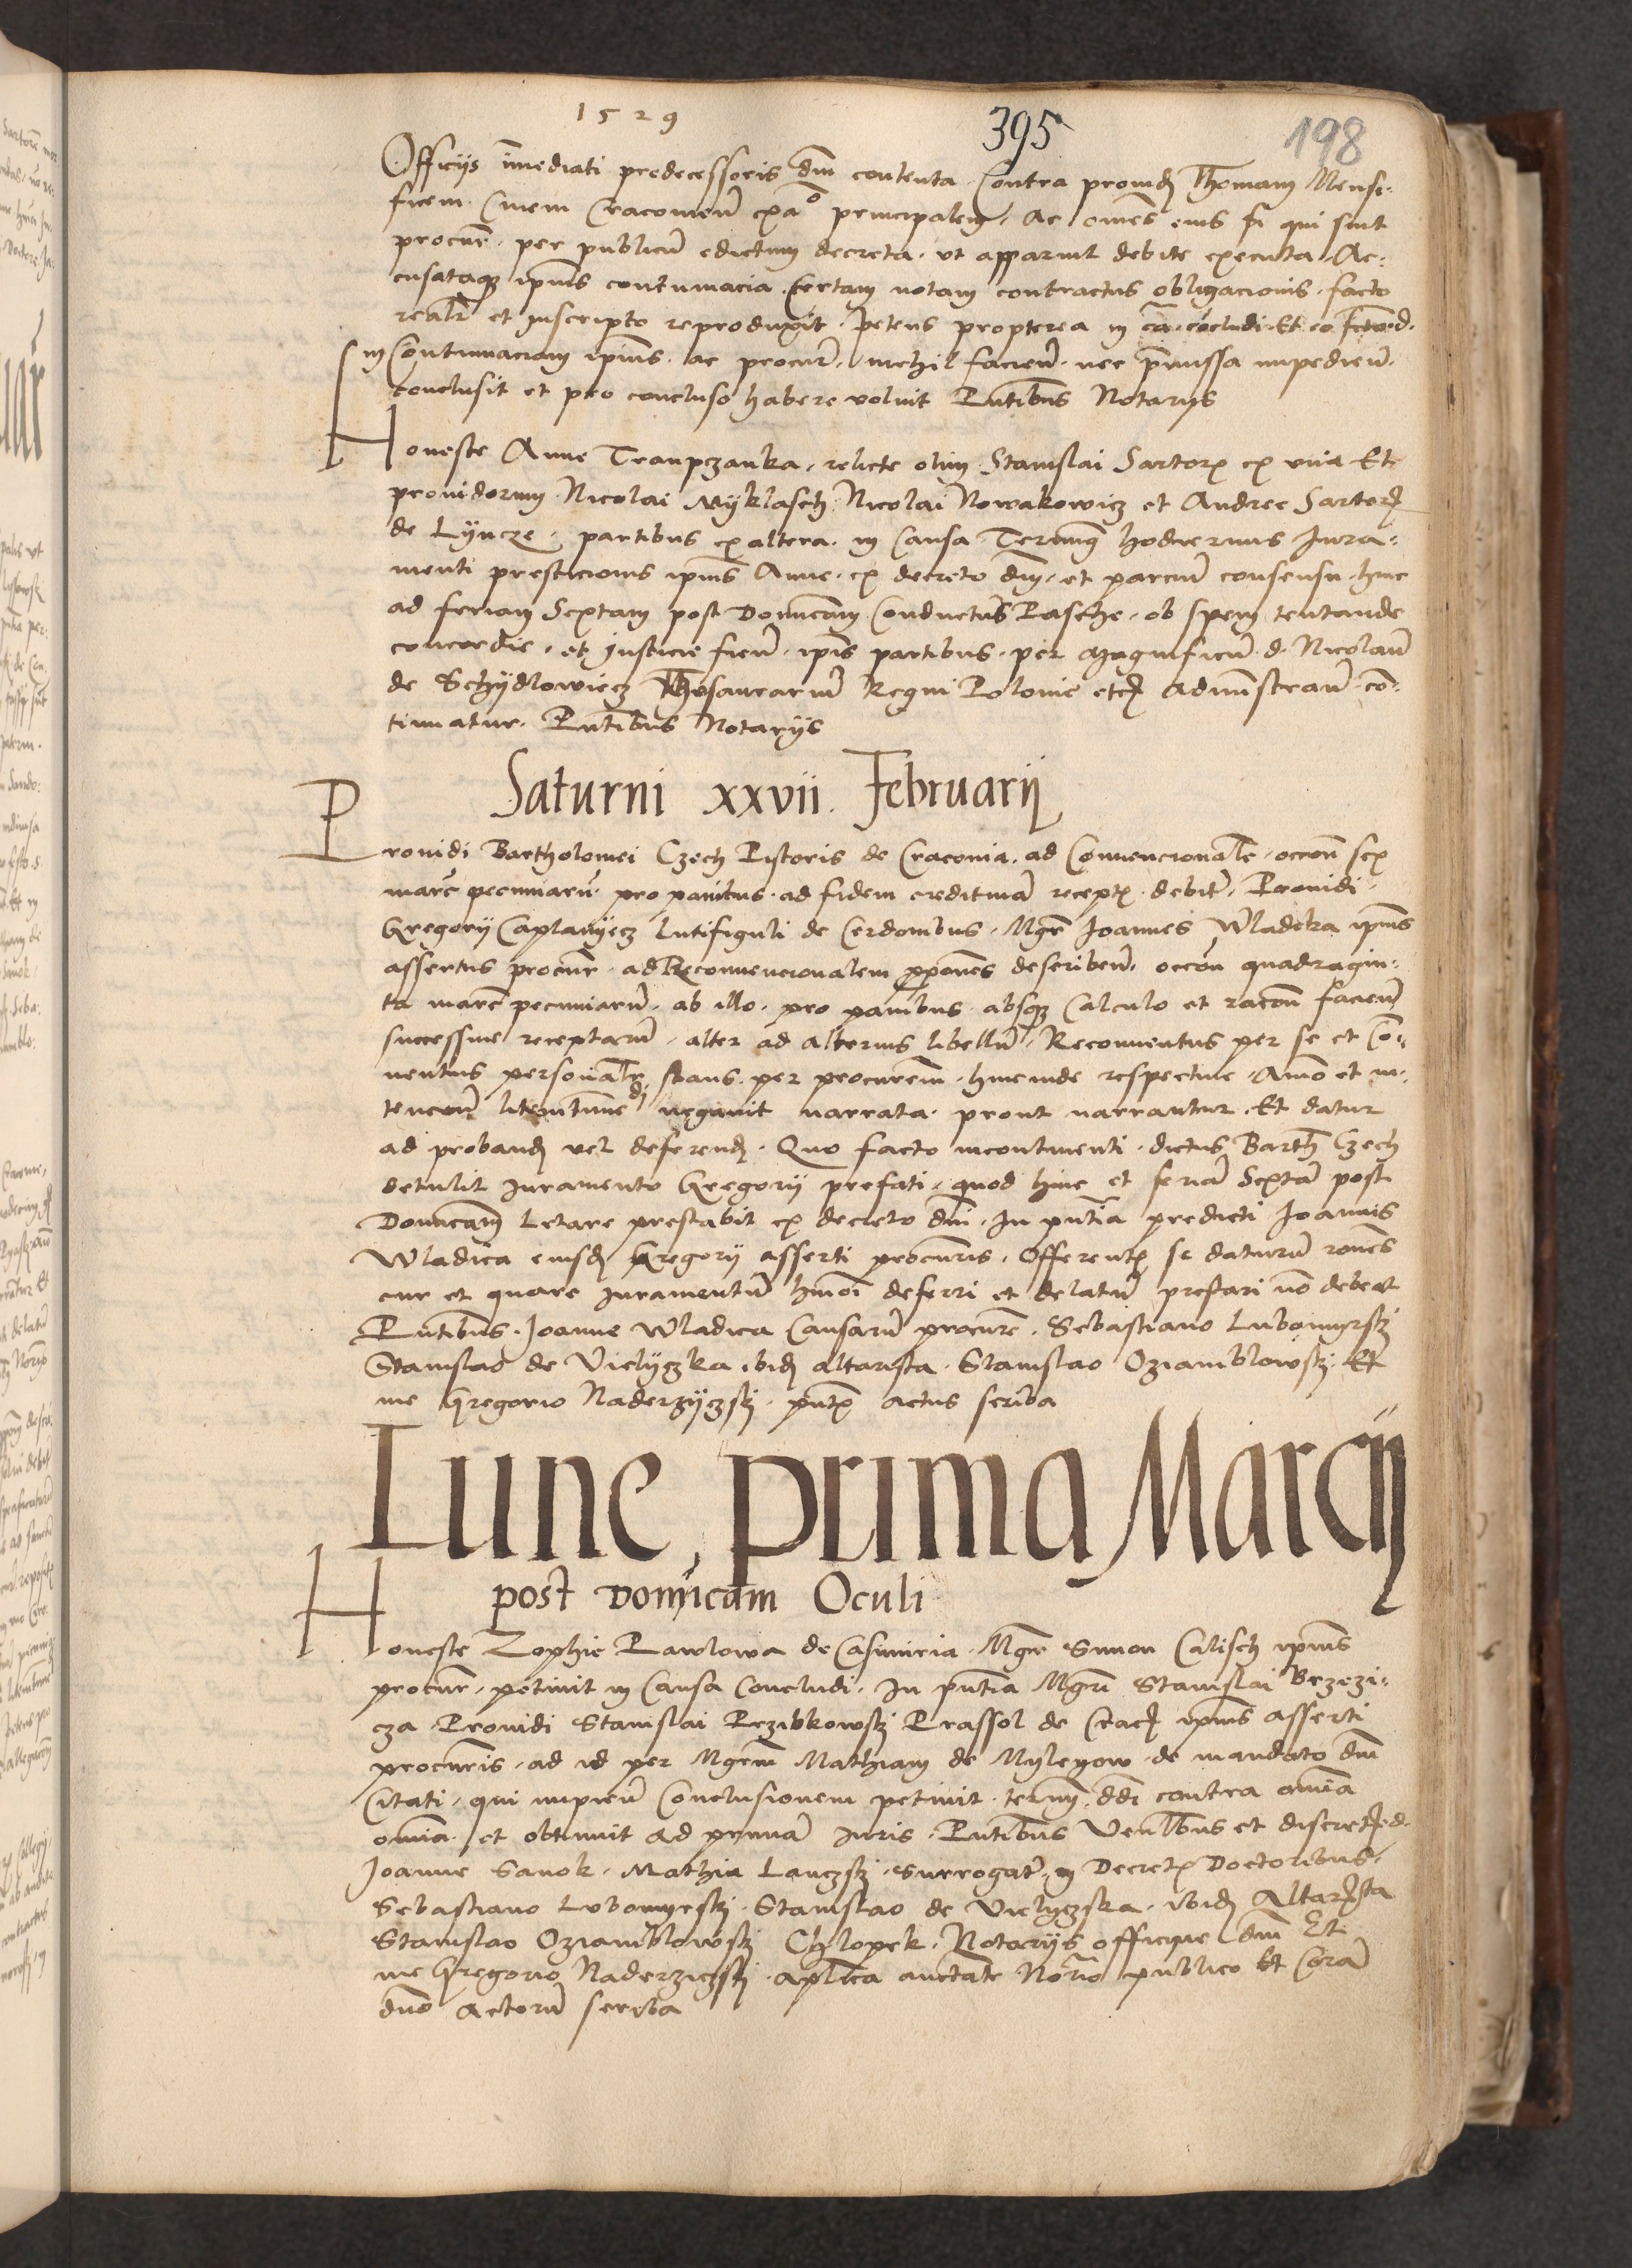 1529
395
198
Officijs immediati predecessoris dnj contenta. Contra prouidū Thomam Mensi-
ficem. Ciuem Cracouien̄ exaᵒ principalem, ac om̄es eius si qui sint
procur̄. per publicū edictum decreta. vt apparuit debite executa. Ac-
cusataqꝫ ipius contumacia. Certam notam contractus obligacionis. facto
realr̄ et inscripto reproduxit. petens propterea in cā. cōcludi. Et
in Contumaciam ipius. ac procur̄. nichil facien̄. nec p̄missa impedien̄.
conclusit et pro concluso habere voluit Pn̄tibus Notarijs
Honeste Anne Traupczanka, relicte olim Stanislai Sartoris ex vna Et
prouidorum Nicolai Myklasch Nicolai Nowakowicz et Andree Sartoris
de Lyncze. partibus ex altera. in Causa Terming hodiernus Iura-
menti presticionis ipius Anne. ex decreto dnj. et parcium consensu. hinc
ad feriam Sextam post Dominicam Conductus Pasche. ob spem tentande
concordie. et Iusticie fien̄. ipis partibus. per Magnificū. d. Nicolaū
de Schydlowiecz Thesaurariū Regni Polonie etc Adminstran̄. con-
tinuatur. Pn̄tibus Notarijs
Saturni xxvii. Februarij
Prouidi Bartholomei Czech Pistoris de Cracouia. ad Conuencionale. occon̄ sex
marc̄ pecuniarū. pro panibus. ad fidem creditiuā recept debit. Prouidi
Gregorij Caplanyecz lutifiguli de Cerdonibus. Mgr̄ Joannes Wladika ipius
assertus procur̄. ad Reconuencionalem describen̄. occon̄ quadragin-
ta marc̄ pecuniarū. ab illo. pro panibus absqꝫ Calculo et racon̄ facien̄
successiue receptarū. alter ad alterius libellū. Reconuentus per se et Con-
uentus personalr̄ stans. per procurem̄. hincinde respectiue. Amo et in-
tencon̄ litem negauit narrata. prout narrantur. Et datur
ad probandū vel deferendū. Quo facto incontinenti. dictus Barth Czech
detulit Iuramento Gregorij prefati. quod hinc et feriā Sextā post
Dominicam Letare prestabit ex decreto dnj. In pn̄tia predicti Joannis
Wladica eiusdē Gregorij asserti procuris. Offerentis se daturū rones
cur et quare Iuramentū hmoi deferri et delatū prestari nō debeat
Pn̄tibus. Joanne Wladica Causarū procure. Sebastiano Lubomyrskj
Stanislao de Vielyczka ibidē altarista. Stanislao Oziamblowskj Et
me Gregorio Naderzyczskj. pn̄tis actus scriba
Lune, prima Marcij
post Domīcam Oculi
Honeste Zophie Pawlowa de Casimiria. Mgr̄ Simon Calisch ipius
procur̄. petiuit in Causa Concludi. In pn̄tia Mgr̄i Stanislai Brzezi-
cza Prouidi Stanislai Przibkowskj Prassol de Crac ipius asserti
procuris. ad id per Mgrm̄ Mathiam de Myleyow. de mandato dnj
Citati, qui Conclusionem petiuit. termī. ddi contra omīa
omīa. et obtinuit ad primā Iuris. Pn̄tibus Ven̄lbus et discretis d.
Joanne Sanok. Mathia Lanczskj. Surrogat. in Decretis Doctoribus.
Sebastiano Lubomyrskj. Stanislao de Vielyczska. ibidē Altarista
Stanislao Oziamblowskj Chlopek. Notarijs officijqꝫ dnj Et
me Gregorio Naderziczskj. aplica auctate Norio publico Et Corā
dno Actorū scriba